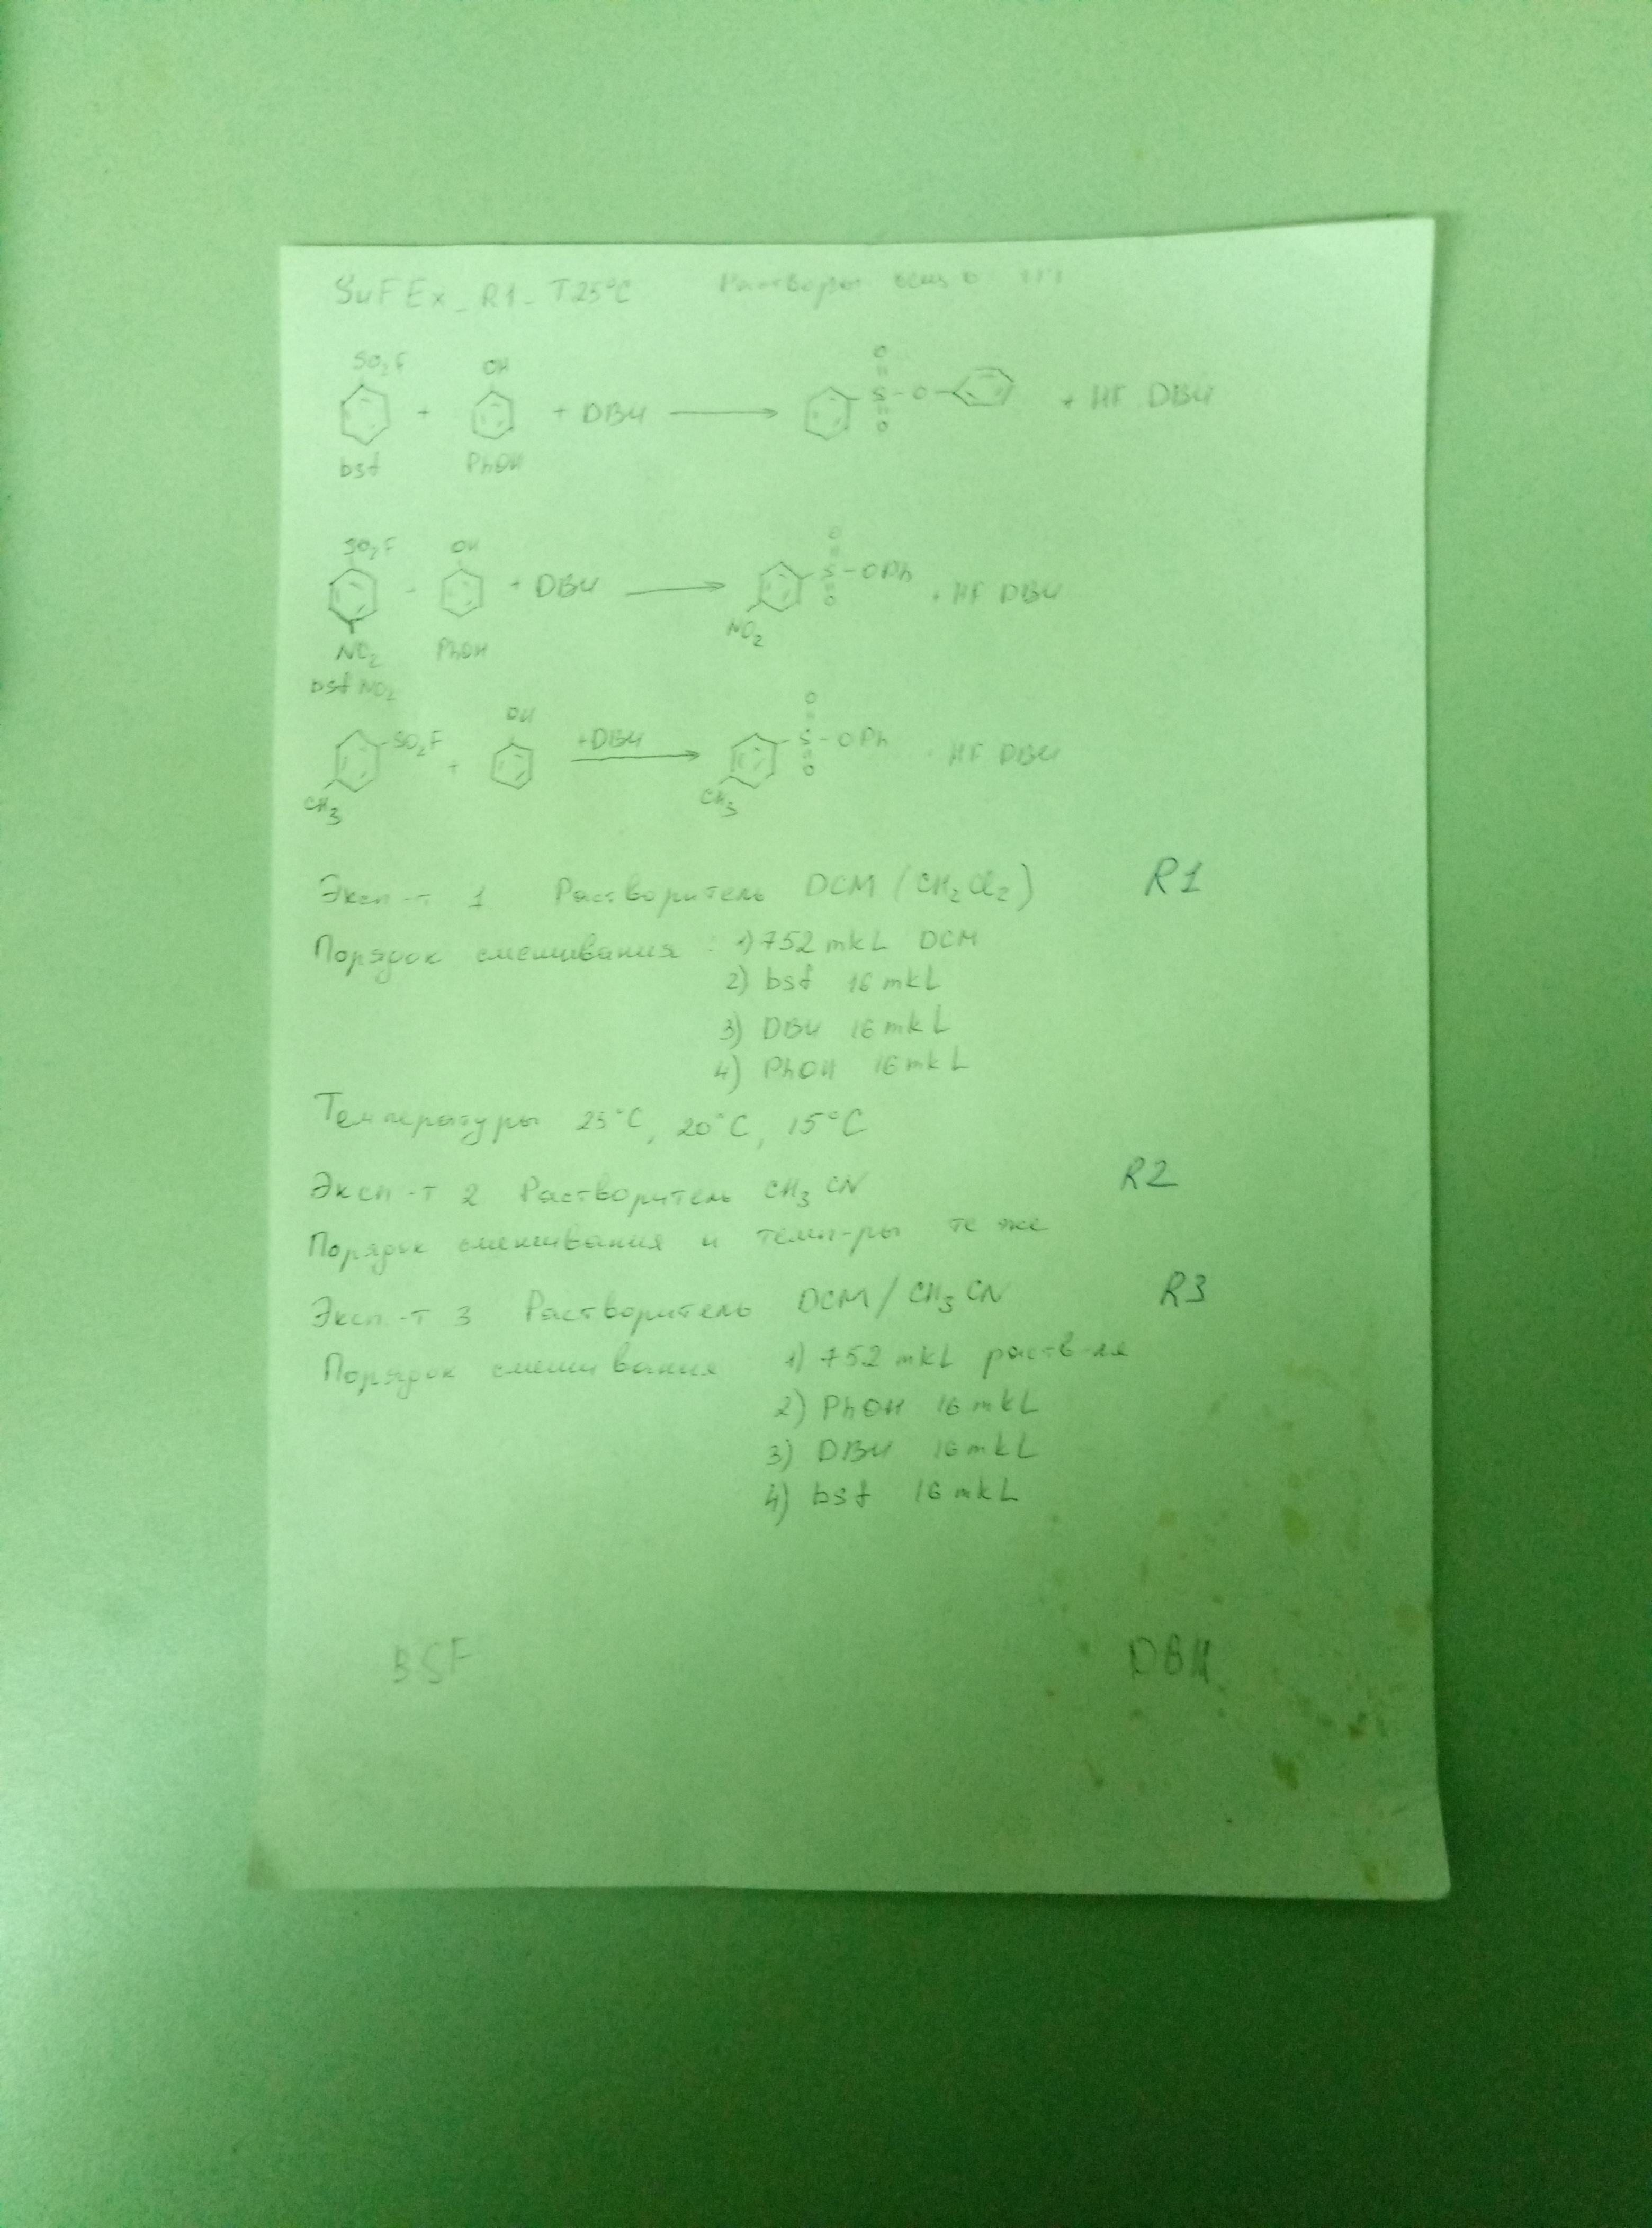 SuFEx_R1_T25°C Растворы
SO₂F OH O
+ + DBU → S-O- + HF DBU
O
bsf PhOH
SO₂F OH O
+ DBU → S-OPh · HF DBU
O
NO₂ PhOH NO₂
bsf NO₂
OH O
SO₂F + +DBU → S-OPh · HF DBU
CH₃ CH₃ O
Эксп-т 1 Растворитель DCM (CH₂Cl₂) R1
Порядок смешивания : 1) 752 mkL DCM
2) bsf 16 mkL
3) DBU 16 mkL
4) PhOH 16 mkL
Температуры 25°C, 20°C, 15°C
Эксп-т 2 Растворитель CH₃CN R2
Порядок смешивания и темп-ры те же
Эксп.-т 3 Растворитель DCM/CH₃CN R3
Порядок смешивания 1) 752 mkL раств-ля
2) PhOH 16 mkL
3) DBU 16 mkL
4) bsf 16 mkL
BSF DBU